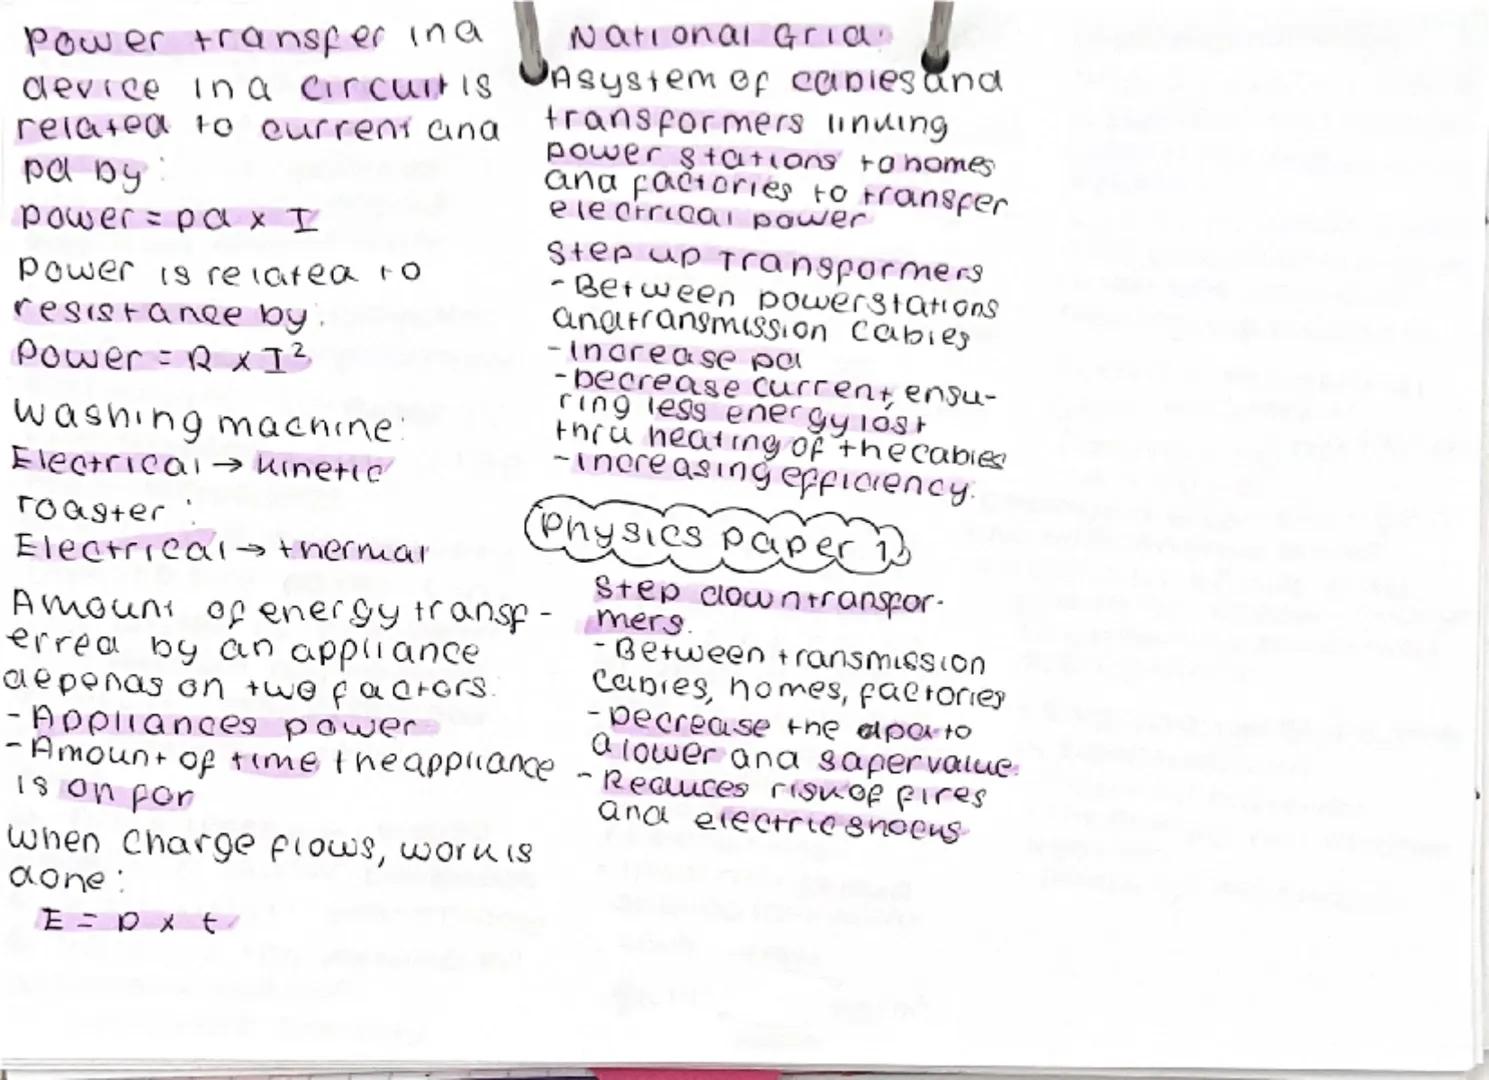 Power transfer in a
device in a circuit is
related to current and
pd by:
power = pd x I
Power is related to
resistance by:
Power = R x I²
Washing machine:
Electrical → kinetic
Toaster:
Electrical → thermal
Amount of energy transf-
erred by an appliance
depends on two factors:
- Appliances power
- Amount of time the appliance
is on for
When charge flows, work is
done:
E = P x t
National Grid:
A system of cables and
transformers linking
power stations to homes
and factories to transfer
electrical power
Step up Transformers
- Between power stations
and transmission cables
- Increase pd
- Decrease current, ensu-
ring less energy lost
thru heating of the cables
- increasing efficiency.
Physics paper 1
Step down transfor-
mers.
- Between transmission
cables, homes, factories
- Decrease the pd to
a lower and safer value.
- Reduces risk of fires
and electric shocks